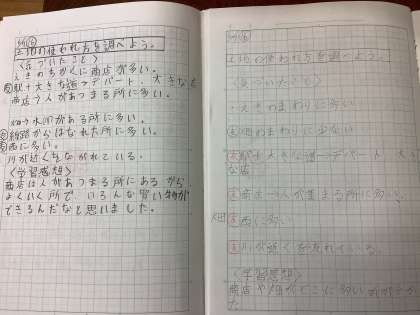 土地の使われ方を調べよう。
〈気づいたこと〉
えきのちかくに商店が多い。
駅+大きな道→デパート、大きな
商店→人があつまる所に多い。
畑→水の がある所に多い。
線路からはなれた所に多い。
西に多い。
川が近くをながれている。
〈学習感想〉
商店は人があつまる所にあるから
よくいく所で、いろんな買い物が
できるんだなと思いました。
土地の使われ方を調べよう。
〈気づいたこと〉
大きわまわりに多い
畑のまわりに少ない
駅+大きな道→デパート、大
な店
商店→人が集まる所に多い
田
西に多い
川が近くを流れている。
〈学習感想〉
商店や畑がどこに多いか分かっ
た